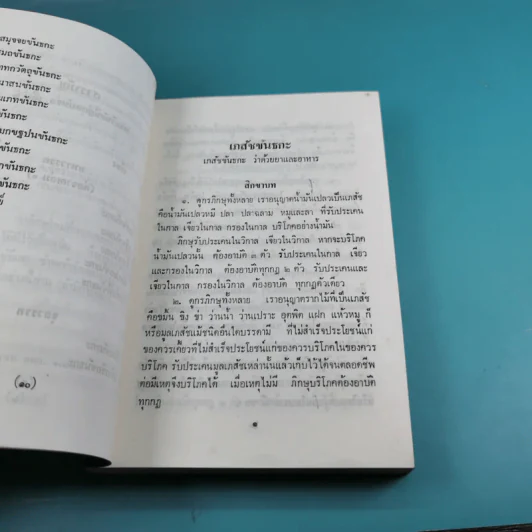 สมุจจยขันธกะ
มถขันธกะ
ททกวัตถุขันธกะ
นาสนขันธกะ
ฆเภทขันธกะ
ขันธกะ
มกขฐปนขันธกะ
ขันธกะ
กขันธกะ
ขันธกะ
(๑๐)
เภสัชขันธกะ
เภสัชขันธกะ ว่าด้วยยาและอาหาร
สิกขาบท
๑. ดูกรภิกษุทั้งหลาย เราอนุญาตน้ำมันเปลวเป็นเภสัช
คือน้ำมันเปลวหมี ปลา ปลาฉลาม หมูและลา ที่รับประเคน
ในกาล เจียวในกาล กรองในกาล บริโภคอย่างน้ำมัน
ภิกษุรับประเคนในวิกาล เจียวในวิกาล หากจะบริโภค
น้ำมันเปลวนั้น ต้องอาบัติ ๓ ตัว รับประเคนในกาล เจียว
และกรองในวิกาล ต้องอาบัติทุกกฏ ๒ ตัว รับประเคนและ
เจียวในกาล กรองในวิกาล ต้องอาบัติ ทุกกฏตัวเดียว
๒. ดูกรภิกษุทั้งหลาย เราอนุญาตรากไม้ที่เป็นเภสัช
คือขมิ้น ขิง ข่า ว่านน้ำ ว่านเปราะ อุตพิด แฝก แห้วหมู ก็
หรือมูลเภสัชแม้ชนิดอื่นใดบรรดามี ที่ไม่สำเร็จประโยชน์แก่
ของควรเคี้ยวที่ไม่สำเร็จประโยชน์แก่ของควรบริโภคในของควร
บริโภค รับประเคนมูลเภสัชเหล่านั้นแล้วเก็บไว้ได้จนตลอดชีพ
ต่อมีเหตุจึงบริโภคได้ เมื่อเหตุไม่มี ภิกษุบริโภคต้องอาบัติ
ทุกกฏ